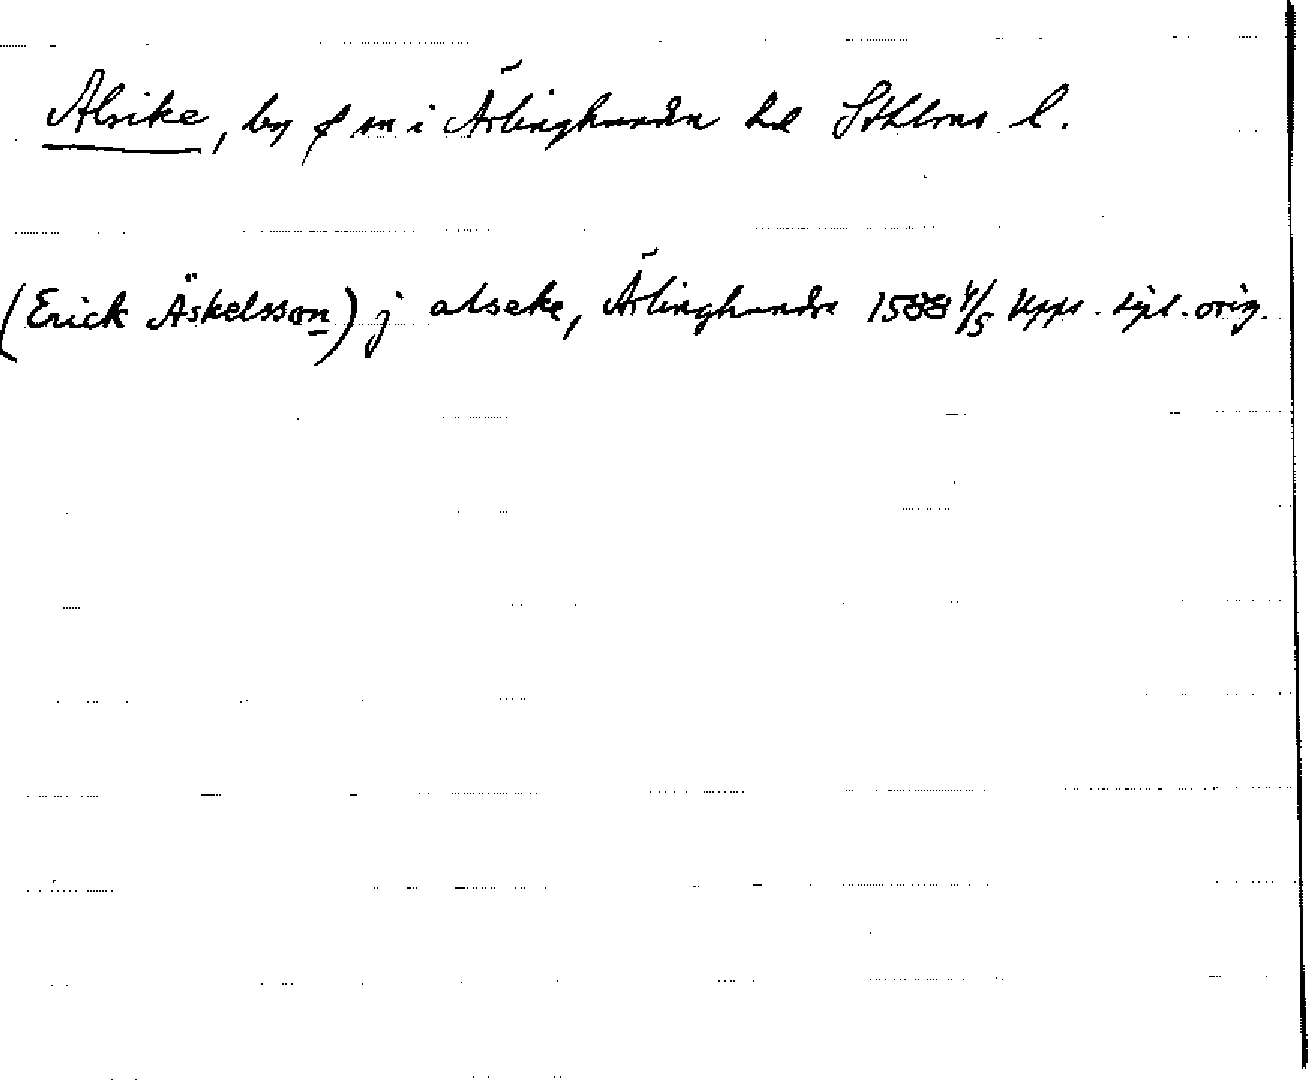 Alsike, by f m i Ärlinghundra hd Sthlms l.
(Erick Äskelsson) j alseke, Ärlinghundr 1588 4/5 Upps. dpl. orig.